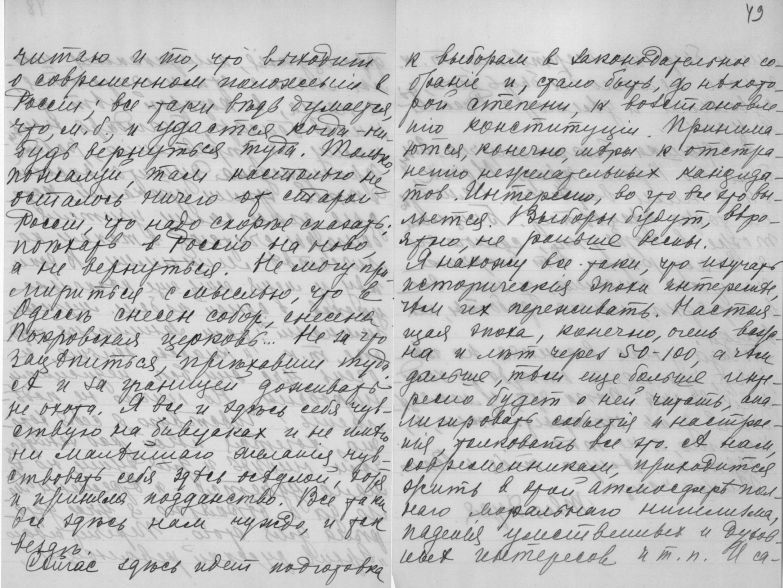 читаю и то, что выходит
о современном положеніи в
Россіи, все-таки ведь думается,
что, м. б., и удастся когда-ни-
будь вернуться туда. Только,
пожалуй, там настолько не
осталось ничего от старой
Россіи, что надо скорѣе сказать:
поѣхать в Россію на ново,
а не вернуться. Не могу при-
мириться с мыслью, что в
Одессѣ снесен собор, снесена
Покровская церковь... Не за что
зацѣпиться, пріѣхавши туда.
А и за границей доживать
не охота. Я все и здѣсь себя чув-
ствую на бивуаках и не имѣю
ни малѣйшаго желанія чув-
ствовать себя здѣсь осѣдлой, хотя
и приняла подданство. Все таки
все здѣсь нам чуждо, и так
вездѣ.
Сейчас здѣсь идет подготовка
49
к выборам в законодательное со-
браніе и, стало быть, до нѣкото-
рой степени, к возстановле-
нію конституціи. Принима-
ются, конечно, мѣры к отстра-
ненію нежелательных кандида-
тов. Интересно, во что все это вы-
льется. Выборы будут, вѣро-
ятно, не раньше весны.
Я нахожу все-таки, что изучать
историческія эпохи интереснѣе,
чѣм их переживать. Настоя-
щая эпоха, конечно, очень важ-
на и лѣт через 50-100, а чѣм
дальше, тѣм еще больше инте-
ресно будет о ней читать, ана-
лизировать событія и настрое-
нія, толковать все это. А нам,
современникам, приходится
жить в этой атмосферѣ пол-
наго моральнаго нигилизма,
паденія умственных и духов-
ных интересов и т. п. И са-